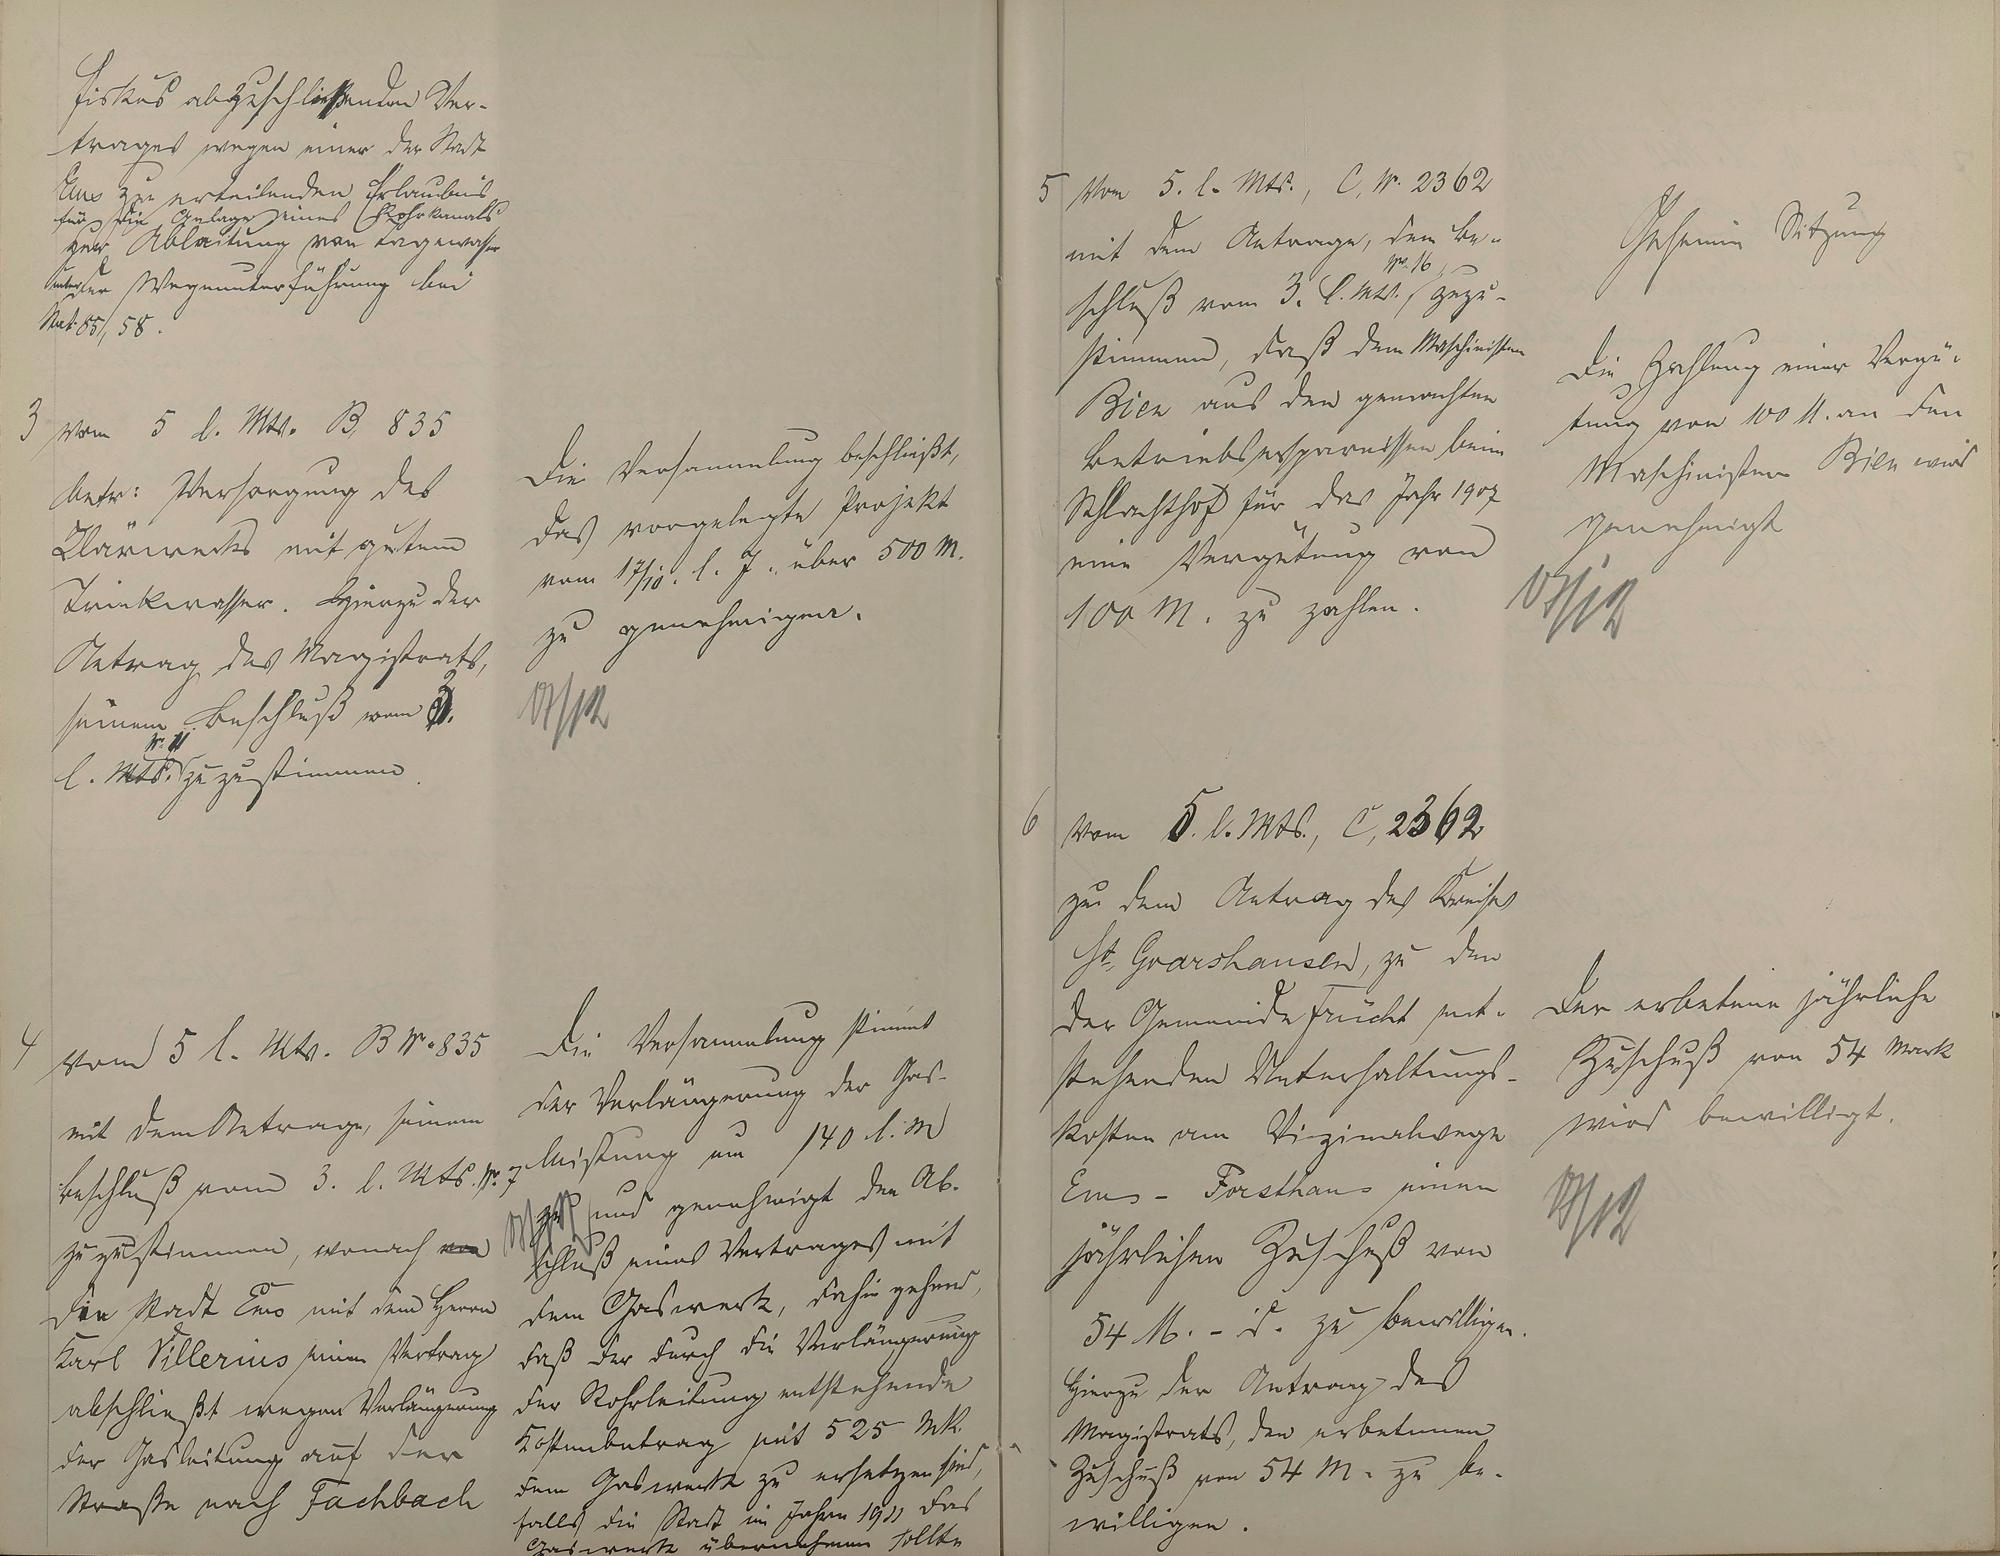 Fiskus abzuschließenden Ver-
trages wegen einer der Stadt
Ems zu erteilenden Erlaubnis
für die Anlage eines Rohrkanals
zur Ableitung von Tagewasser
unter der Wegeunterführung bei
Stat. 85/58.
3 vom 5 l. Mts. B 835
betr: Versorgung des
Klärwerks mit gutem
Trinkwasser. Hierzu der
Antrag des Magistrats,
seinem Beschluß vom 3.
l. Mts. No 11 zuzustimmen.
Die Versammlung beschließt,
das vorgelegte Projekt
vom 17/10. l. J. über 500 M.
zu genehmigen.
4 vom 5 l. Mts. B No 835
mit dem Antrage, seinem
Beschluß vom 3. l. Mts. No. 7
zuzustimmen, wonach
die Stadt Ems mit dem Herrn
Karl Villerius einen Vertrag
abschließt wegen Verlängerung
der Gasleitung auf der
Straße nach Fachbach
Die Versammlung stimmt
der Verlängerung der Gas-
leitung um 140 l. M
zu und genehmigt den Ab-
schluß eines Vertrages mit
dem Gaswerk, dahin gehend,
daß der durch die Verlängerung
der Rohrleitung entstehende
Kostenbetrag mit 525 Mk
dem Gaswerk zu ersetzen sind,
falls die Stadt im Jahre 1911 das
Gaswerk übernehmen sollte
5 Vom 5. l. Mts., C, No. 2362
mit dem Antrage, dem Be-
schluß vom 3. l. Mts., No. 16, zuzu-
stimmen, daß dem Maschinisten
Bien aus den gemachten
Betriebsersparnissen beim
Schlachthof für das Jahr 1907
eine Vergütung von
100 M. zu zahlen.
Geheime Sitzung
Die Zahlung einer Vergü-
tung von 100 M. an den
Maschinisten Bien wird
genehmigt
6 Vom 5. l. Mts., C, 2362
zu dem Antrag des Kreises
St. Goarshausen, zu den
der Gemeinde Frücht ent-
stehenden Unterhaltungs-
kosten am Vizinalwege
Ems - Forsthaus einen
jährlichen Zuschuß von
54 M. zu bewilligen.
Hierzu der Antrag des
Magistrats, den erbetenen
Zuschuß von 54 M. zu be-
willigen.
Der erbetene jährliche
Zuschuß von 54 Mark
wird bewilligt.